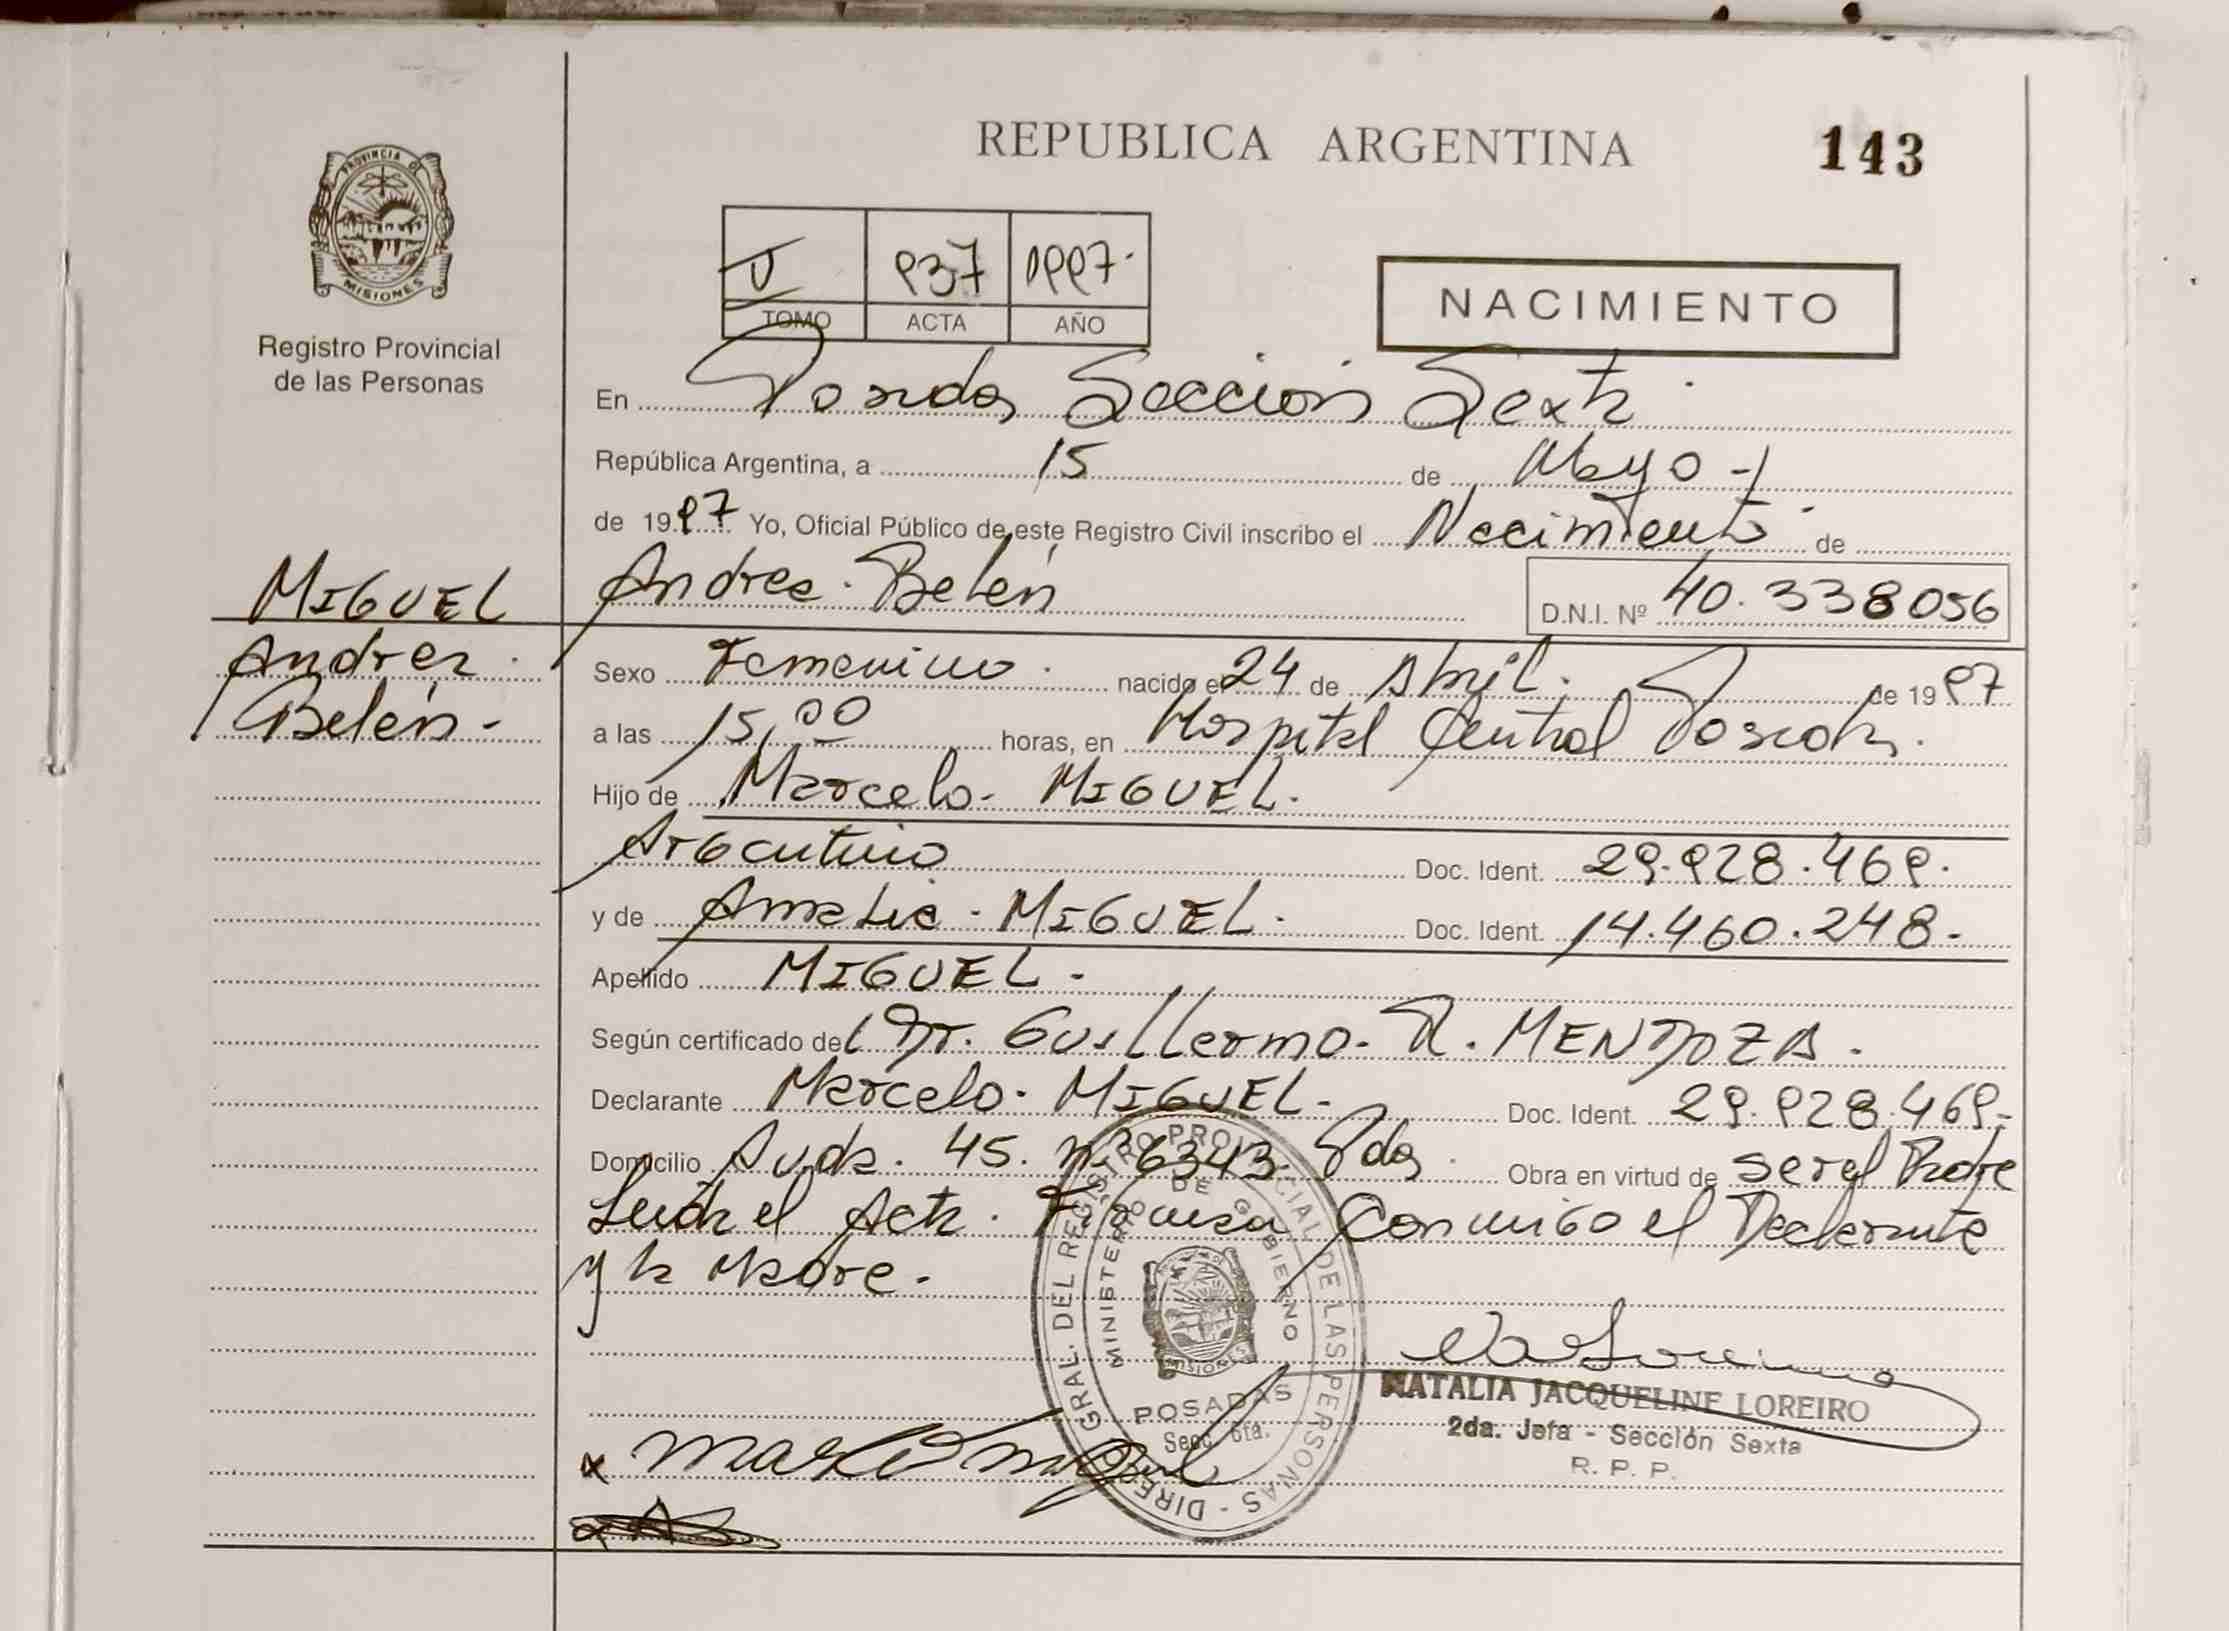 REPUBLICA ARGENTINA
143
PROVINCIA DE
MISIONES
Registro Provincial
de las Personas
V 937 1997.
TOMO ACTA AÑO
NACIMIENTO
En Posadas Sección Sexta.
República Argentina, a 15 de Mayo -
de 1997 Yo, Oficial Público de este Registro Civil inscribo el Nacimiento de
Andrea Belén D.N.I. Nº 40.338056
MIGUEL
Andrea
Belén -
Sexo Femenino. nacido el 24 de Abril. de 1997
a las 15,00 horas, en Hospital Central Posadas.
Hijo de Marcelo - MIGUEL.
Argentino Doc. Ident. 29.928.469.
y de Amalia - MIGUEL. Doc. Ident. 14.460.248.-
Apellido MIGUEL.
Según certificado del Dr. Guillermo. R. MENDOZA.
Declarante Marcelo. MIGUEL. Doc. Ident. 29.928.469.-
Domicilio Avda. 45. nº 6343. Pdas. Obra en virtud de ser el Padre
Leída el Acta. Firman Conmigo el Declarante
y la Madre.
DIREC GRAL. DEL REGISTRO PROVINCIAL DE LAS PERSONAS -
MINISTERIO DE GOBIERNO
MISIONES
POSADAS
Secc. 6ta.
NATALIA JACQUELINE LOREIRO
2da. Jefa - Sección Sexta
R. P. P.
x Marcelo Miguel